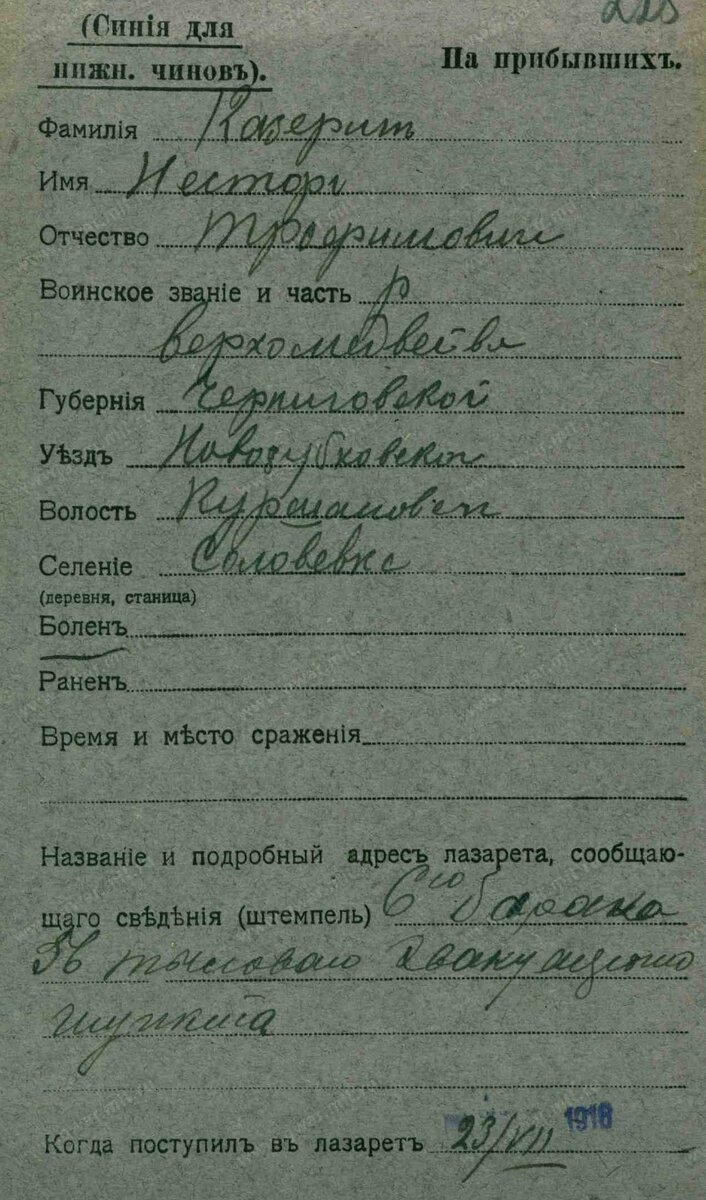 (Синія для
нижн. чиновъ).
На прибывшихъ.
Фамилія Казерит
Имя Нестор
Отчество Трофимович
Воинское званіе и часть р
Губернія Черниговской
Уѣздъ Новозубковской
Волость
Селеніе Соловевка
(деревня, станица)
Боленъ
Раненъ
Время и мѣсто сраженія
Названіе и подробный адресъ лазарета, сообщаю-
щаго свѣдѣнія (штемпель) 6го барака
тыловаго эвакуацыоно
пункта
Когда поступилъ въ лазаретъ 23/VII 1916